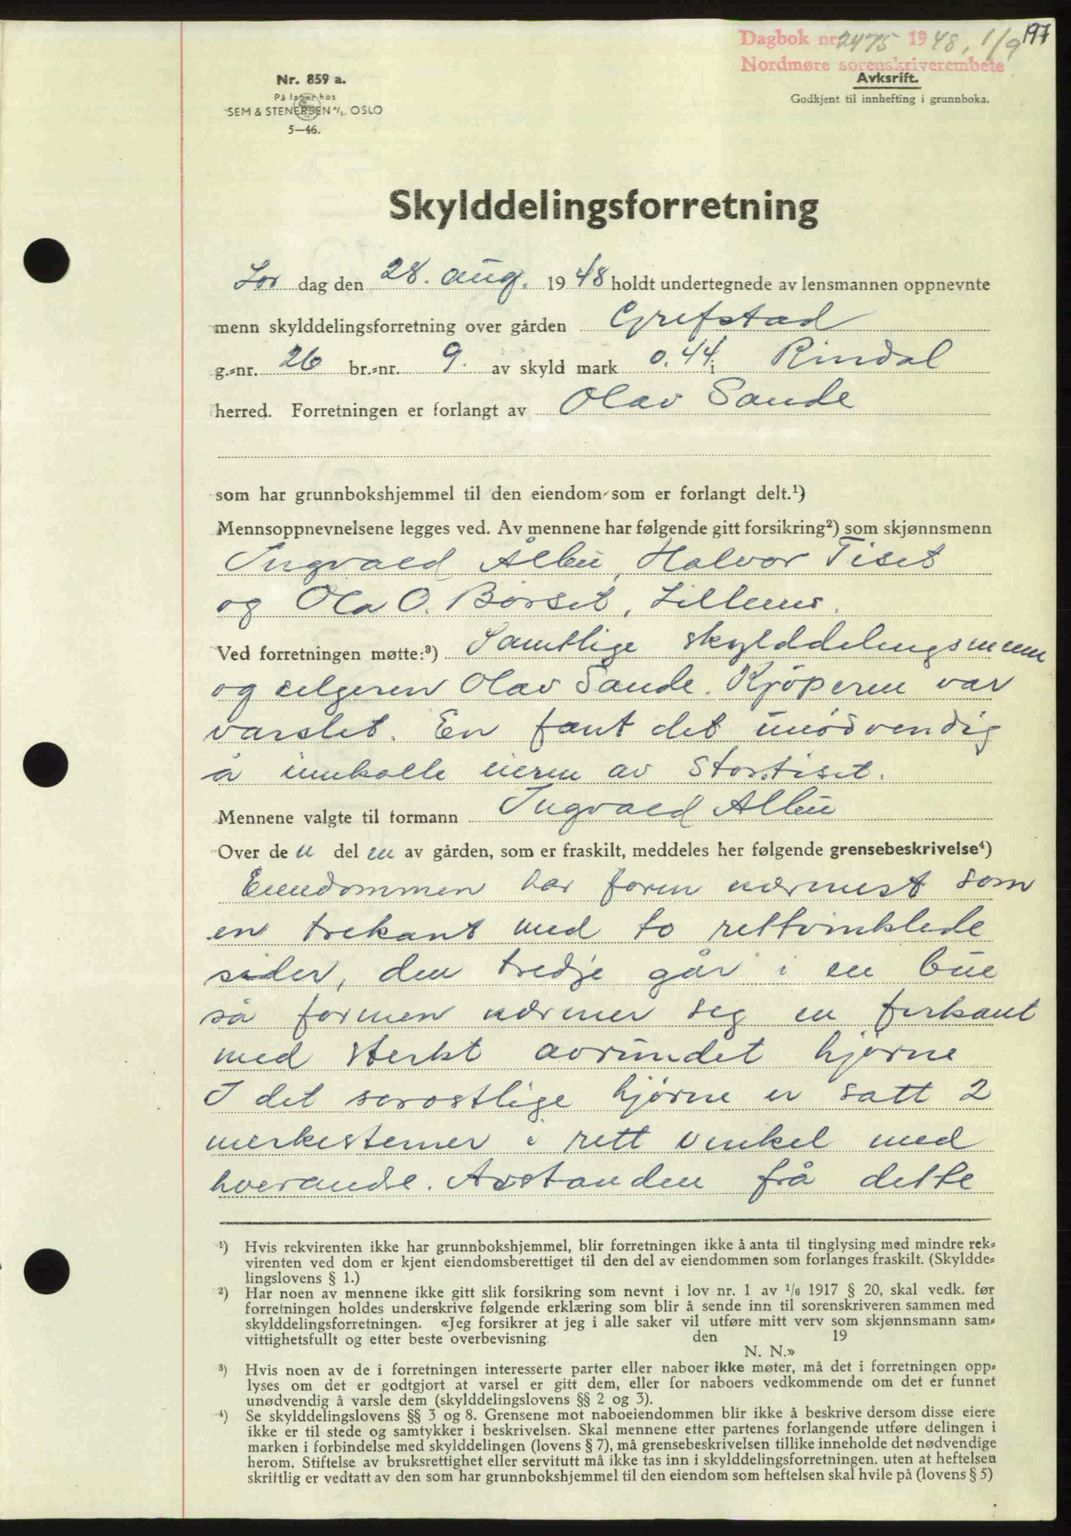 197
Dagbok nr. 2475 1948, 1/9
Nordmøre sorenskriverembete
Avskrift.
Godkjent til innhefting i grunnboka.
Nr. 859 a.
På lager hos
SEM & STENERSEN A/S, OSLO
5—46.
Skylddelingsforretning
Lør dag den 28. aug. 1948 holdt undertegnede av lensmannen oppnevnte
menn skylddelingsforretning over gården Grefstad
g.-nr. 26 br.-nr. 9. av skyld mark 0.44 i Rindal
herred. Forretningen er forlangt av Olav Sande
som har grunnbokshjemmel til den eiendom som er forlangt delt.¹)
Mennsoppnevnelsene legges ved. Av mennene har følgende gitt forsikring²) som skjønnsmenn
Ingvald Albu, Halvor Tiset
og Ola O. Børset, Lillemo.
Ved forretningen møtte:³) Samtlige skylddelingsmenn
og selgeren Olav Sande. Kjøperen var
varslet. En fant det unødvendig
å innkalle eieren av Stortiset.
Mennene valgte til formann Ingvald Albu
Over den delen av gården, som er fraskilt, meddeles her følgende grensebeskrivelse⁴)
Eiendommen har form nærmest som
en trekant med to rettvinklede
sider, den tredje går i en bue
så formen nærmer seg en firkant
med sterkt avrundet hjørne
I det sørostlige hjørne er satt 2
merkestener i rett vinkel med
hverandre. Avstanden frå dette
¹) Hvis rekvirenten ikke har grunnbokshjemmel, blir forretningen ikke å anta til tinglysing med mindre rek-
virenten ved dom er kjent eiendomsberettiget til den del av eiendommen som forlanges fraskilt. (Skyldde-
lingslovens § 1.)
²) Har noen av mennene ikke gitt slik forsikring som nevnt i lov nr. 1 av 1/6 1917 § 20, skal vedk. før
forretningen holdes underskrive følgende erklæring som blir å sende inn til sorenskriveren sammen med
skylddelingsforretningen. «Jeg forsikrer at jeg i alle saker vil utføre mitt verv som skjønnsmann sam-
vittighetsfullt og etter beste overbevisning den 19
N. N.»
³) Hvis noen av de i forretningen interesserte parter eller naboer ikke møter, må det i forretningen opp-
lyses om det er godtgjort at varsel er gitt dem, eller for naboers vedkommende om det er funnet
unødvendig å varsle dem (skylddelingslovens §§ 2 og 3).
⁴) Se skylddelingslovens §§ 3 og 8. Grensene mot naboeiendommen blir ikke å beskrive dersom disse eiere
ikke er til stede og samtykker i beskrivelsen. Skal mennene etter partenes forlangende utføre delingen i
marken i forbindelse med skylddelingen (lovens § 7), må grensebeskrivelsen tillike inneholde det nødvendige
herom. Stiftelse av bruksrettighet eller servitutt må ikke tas inn i skylddelingsforretningen, uten at heftelsen
skriftlig er vedtatt av den som har grunnbokshjemmel til den eiendom som heftelsen skal hvile på (lovens § 5)